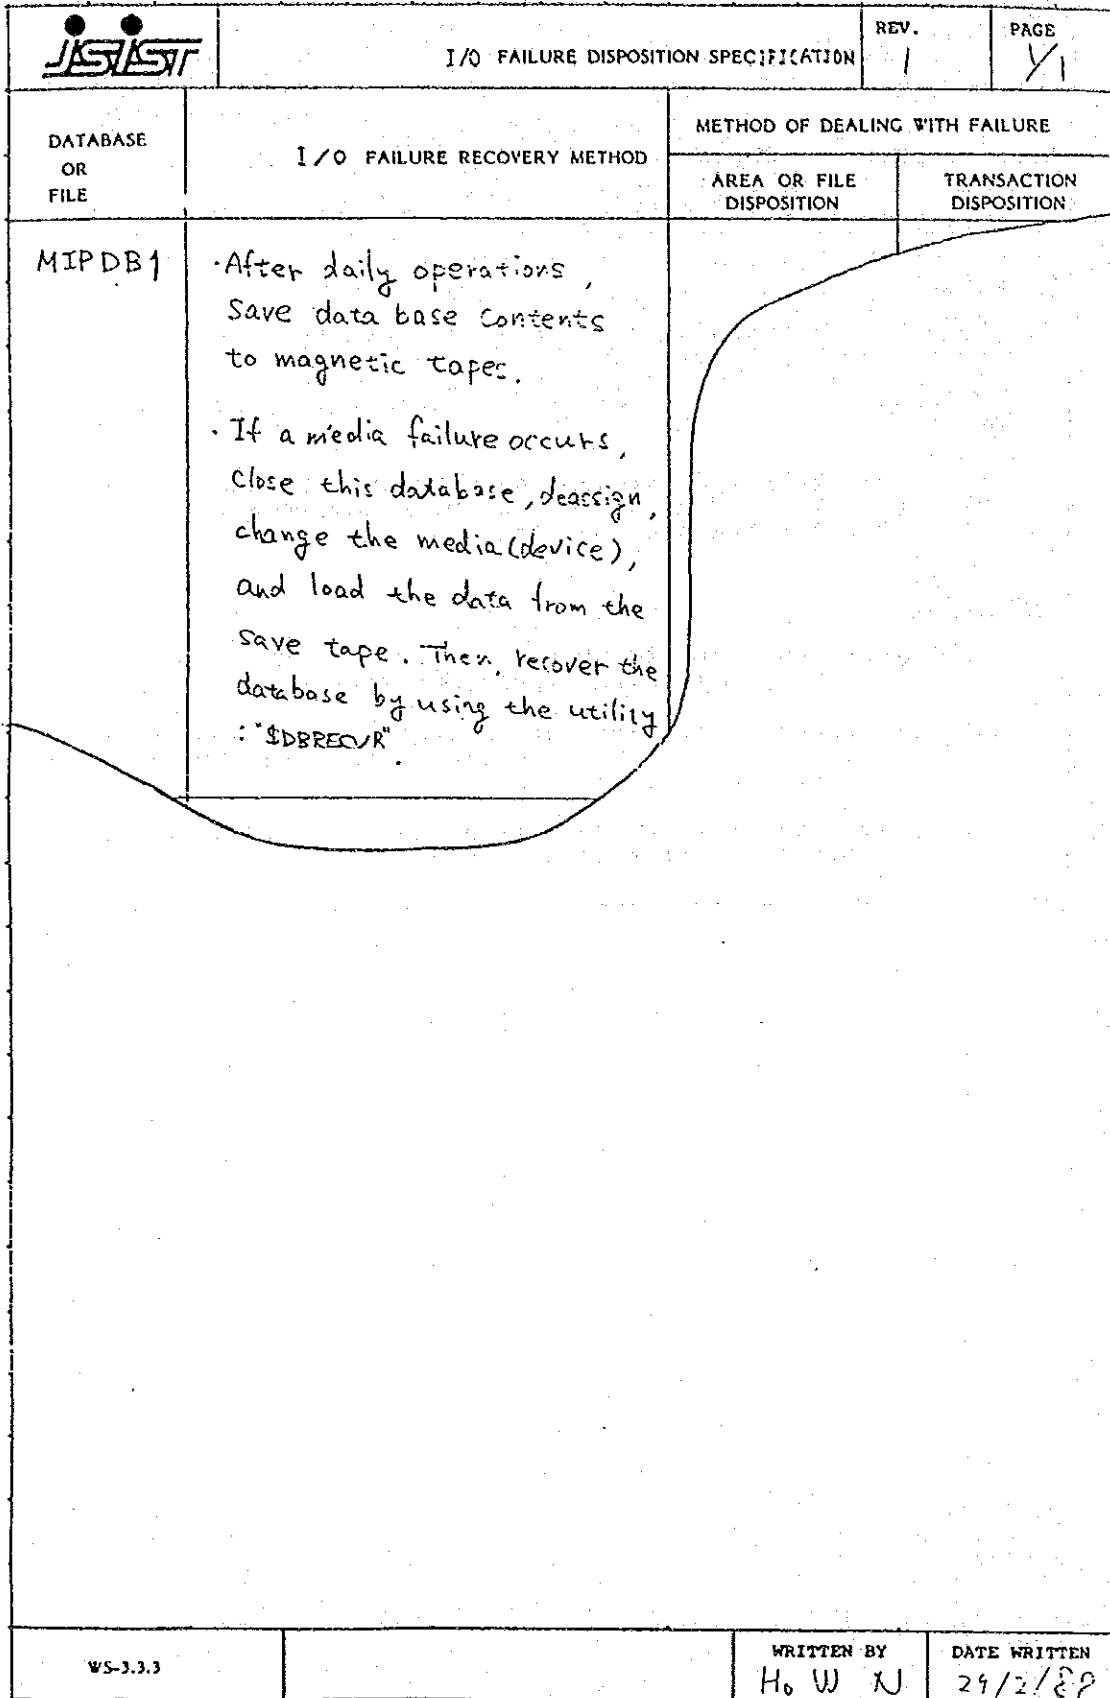 JSIST
I/O FAILURE DISPOSITION SPECIFICATION
REV.
1
PAGE
1/1
DATABASE
OR
FILE
I/O FAILURE RECOVERY METHOD
METHOD OF DEALING WITH FAILURE
AREA OR FILE
DISPOSITION
TRANSACTION
DISPOSITION
MIPDB1
·After daily operations,
Save data base contents
to magnetic tapes.
·If a media failure occurs,
Close this database, deassign,
change the media (device),
and load the data from the
save tape. Then, recover the
database by using the utility
:"$DBRECVR".
WS-3.3.3
WRITTEN BY
Ho W N
DATE WRITTEN